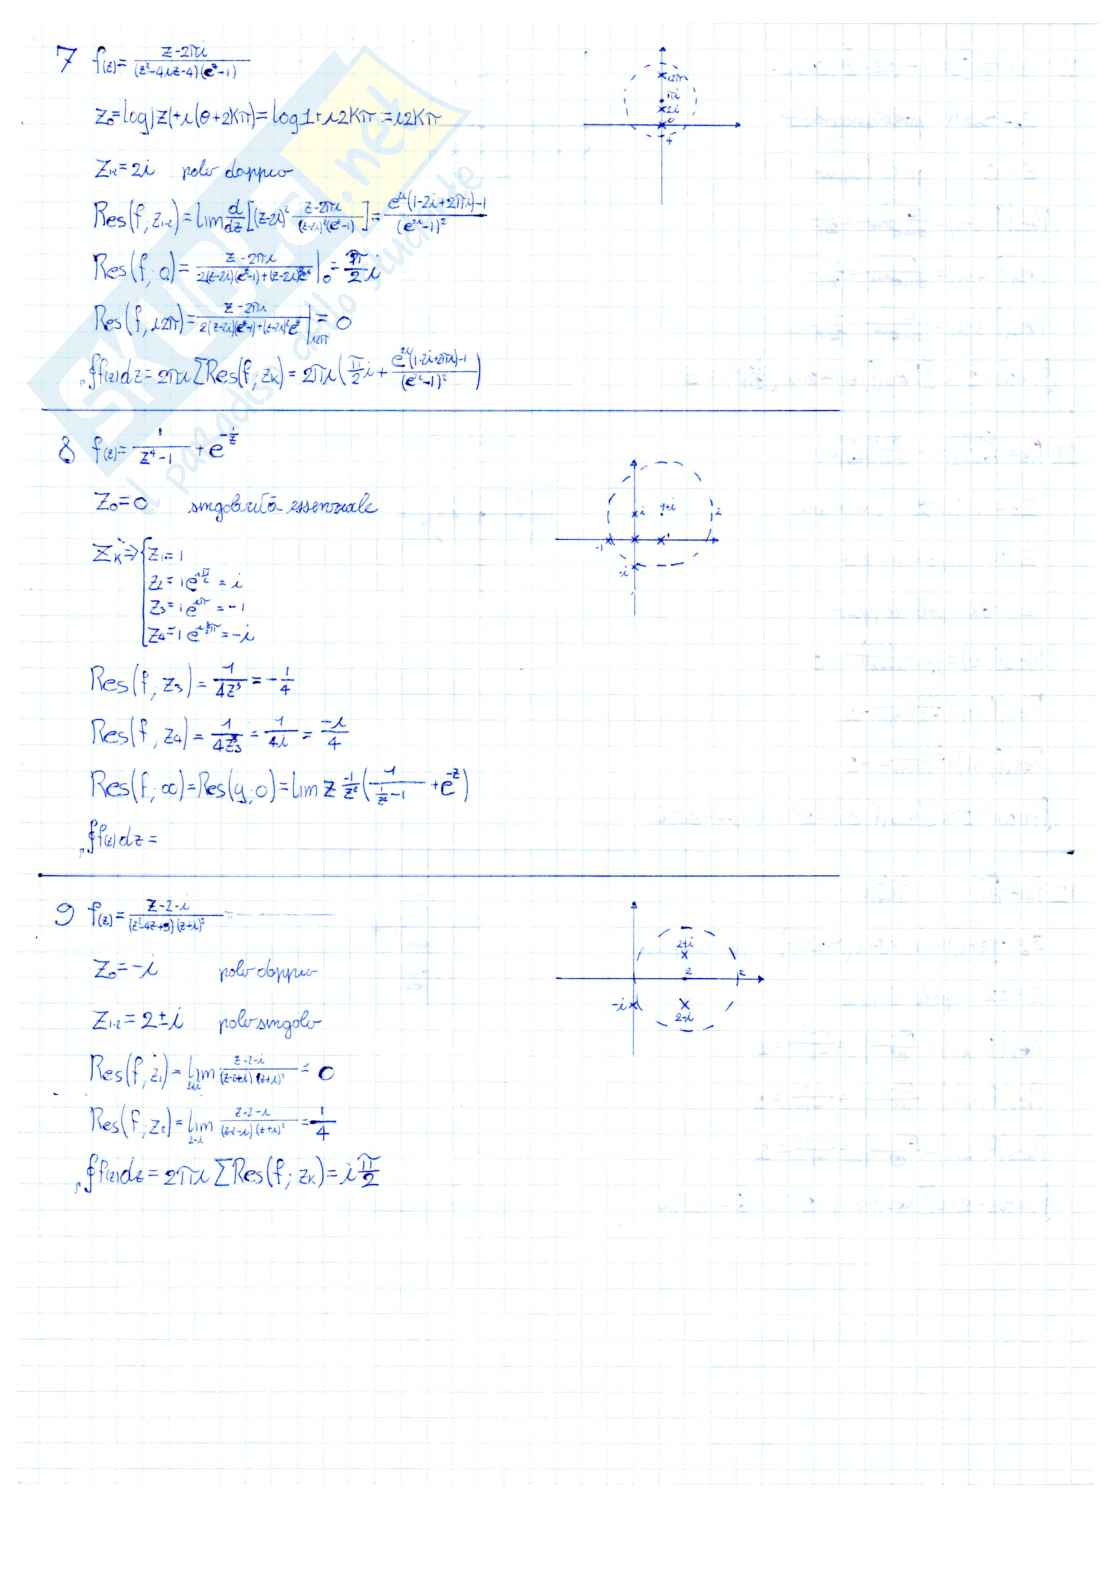 7 f(z)= z-2πi / (z²-4iz-4)(e^z-1)
z₀=log|z|+i(θ+2kπ)=log1+i2kπ=i2kπ
z₁₋₂=2i polo doppio
Res(f,z₁₋₂)=lim d/dz[(z-2i)² z-2πi / (z-2i)²(e^z-1)]= e^2i(1-2i+2πi)-1 / (e^2i-1)²
Res(f,0)= z-2πi / 2(z-2i)(e^z-1)+(z-2i)²e^z |₀= π/2 i
Res(f,i2π)= z-2πi / 2(z-2i)(e^z-1)+(z-2i)²e^z |i2π = 0
∮f(z)dz=2πi∑Res(f,zₖ)=2πi(π/2 i+ e^2i(1-2i+2πi)-1 / (e^2i-1)²)
i2π
πi
2i
0
8 f(z)= 1 / z⁴-1 + e^-1/z
z₀=0 singolarità essenziale
zₖ⇒{z₁=1
z₂=1e^iπ/2=i
z₃=1e^iπ=-1
z₄=1e^i3/2π=-i
Res(f,z₃)= 1/4z³=-1/4
Res(f,z₄)= 1/4z³=1/4i=-i/4
Res(f,∞)=Res(g,0)=lim z -1/z²(1 / 1/z⁴-1 +e^-z)
∮f(z)dz=
i
1+i
2
-1
1
-i
9 f(z)= z-2-i / (z²-4z+5)(z+i)²
z₀=-i polo doppio
z₁₋₂=2±i polo singolo
Res(f,z₁)=lim 2+i z-2-i / (z-2+i)(z+i)² = 0
Res(f,z₂)=lim 2-i z-2-i / (z-2-i)(z+i)² = 1/4
∮f(z)dz=2πi∑Res(f,zₖ)=i π/2
2+i
2
2
-i
2-i
skuola.net
il paradiso dello studente